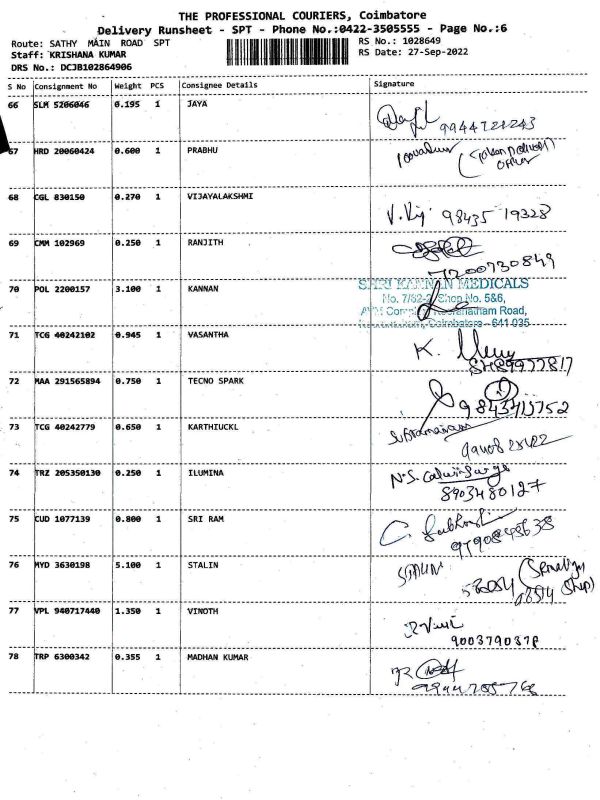 THE PROFESSIONAL COURIERS, Coimbatore
Delivery Runsheet - SPT - Phone No.:0422-3505555 - Page No.:6
Route: SATHY MAIN ROAD SPT
RS No.: 1028649
Staff: KRISHANA KUMAR
RS Date: 27-Sep-2022
DRS No.: DCJB102864906
S No Consignment No Weight PCS Consignee Details Signature
66 SLM 5206046 0.195 1 JAYA
9944721243
67 HRD 20060424 0.600 1 PRABHU
68 CGL 830150 0.270 1 VIJAYALAKSHMI
V.Viji 98435 19328
69 CMM 102969 0.250 1 RANJITH
7200730849
70 POL 2200157 3.100 1 KANNAN
SHRI KANNAN MEDICALS
No. 7/62-2, Shop No. 5&6,
Road,
Coimbatore - 641 035
71 TCG 40242102 0.945 1 VASANTHA
K.
72 MAA 291565894 0.750 1 TECNO SPARK
73 TCG 40242779 0.650 1 KARTHIUCKL
74 TRZ 205350130 0.250 1 ILUMINA
N.S.
8903480127
75 CUD 1077139 0.800 1 SRI RAM
C.
76 MYD 3630198 5.100 1 STALIN
STALIN
77 VPL 940717440 1.350 1 VINOTH
78 TRP 6300342 0.355 1 MADHAN KUMAR